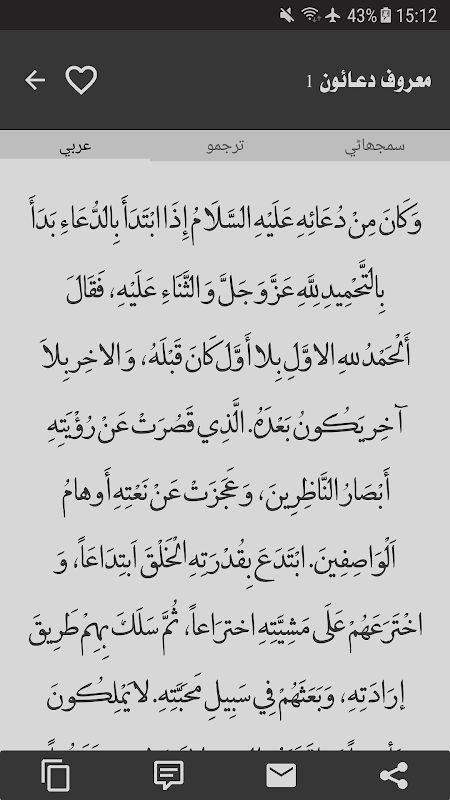 43% 15:12
معروف دعائون 1
عربي ترجمو سمجھاڻي
وَكَانَ مِنْ دُعَائِهِ عَلَيْهِ السَّلَامُ إِذَا ابْتَدَأَ بِالدُّعَاءِ بَدَأَ
بِالتَّحْمِيدِ لِلَّهِ عَزَّ وَجَلَّ وَالثَّنَاءِ عَلَيْهِ، فَقَالَ
أَلْحَمْدُ للهِ الاوَّلِ بِلا أَوَّل كَانَ قَبْلَهُ، وَالاخِر بِلاَ
آخِر يَكُونُ بَعْدَهُ. الَّذِي قَصُرَتْ عَنْ رُؤْيَتِهِ
أَبْصَارُ النَّاظِرِينَ، وَعَجَزَتْ عَنْ نَعْتِهِ أَوهامُ
اَلْوَاصِفِينَ. ابْتَدَعَ بِقُدْرَتِهِ الْخَلْقَ اَبتِدَاعَاً، وَ
اخْتَرَعَهُمْ عَلَى مَشِيَّتِهِ اختِرَاعاً، ثُمَّ سَلَكَ بِهِمْ طَرِيقَ
إرَادَتِهِ، وَبَعَثَهُمْ فِي سَبِيلِ مَحَبَّتِهِ. لايَمْلِكُونَ